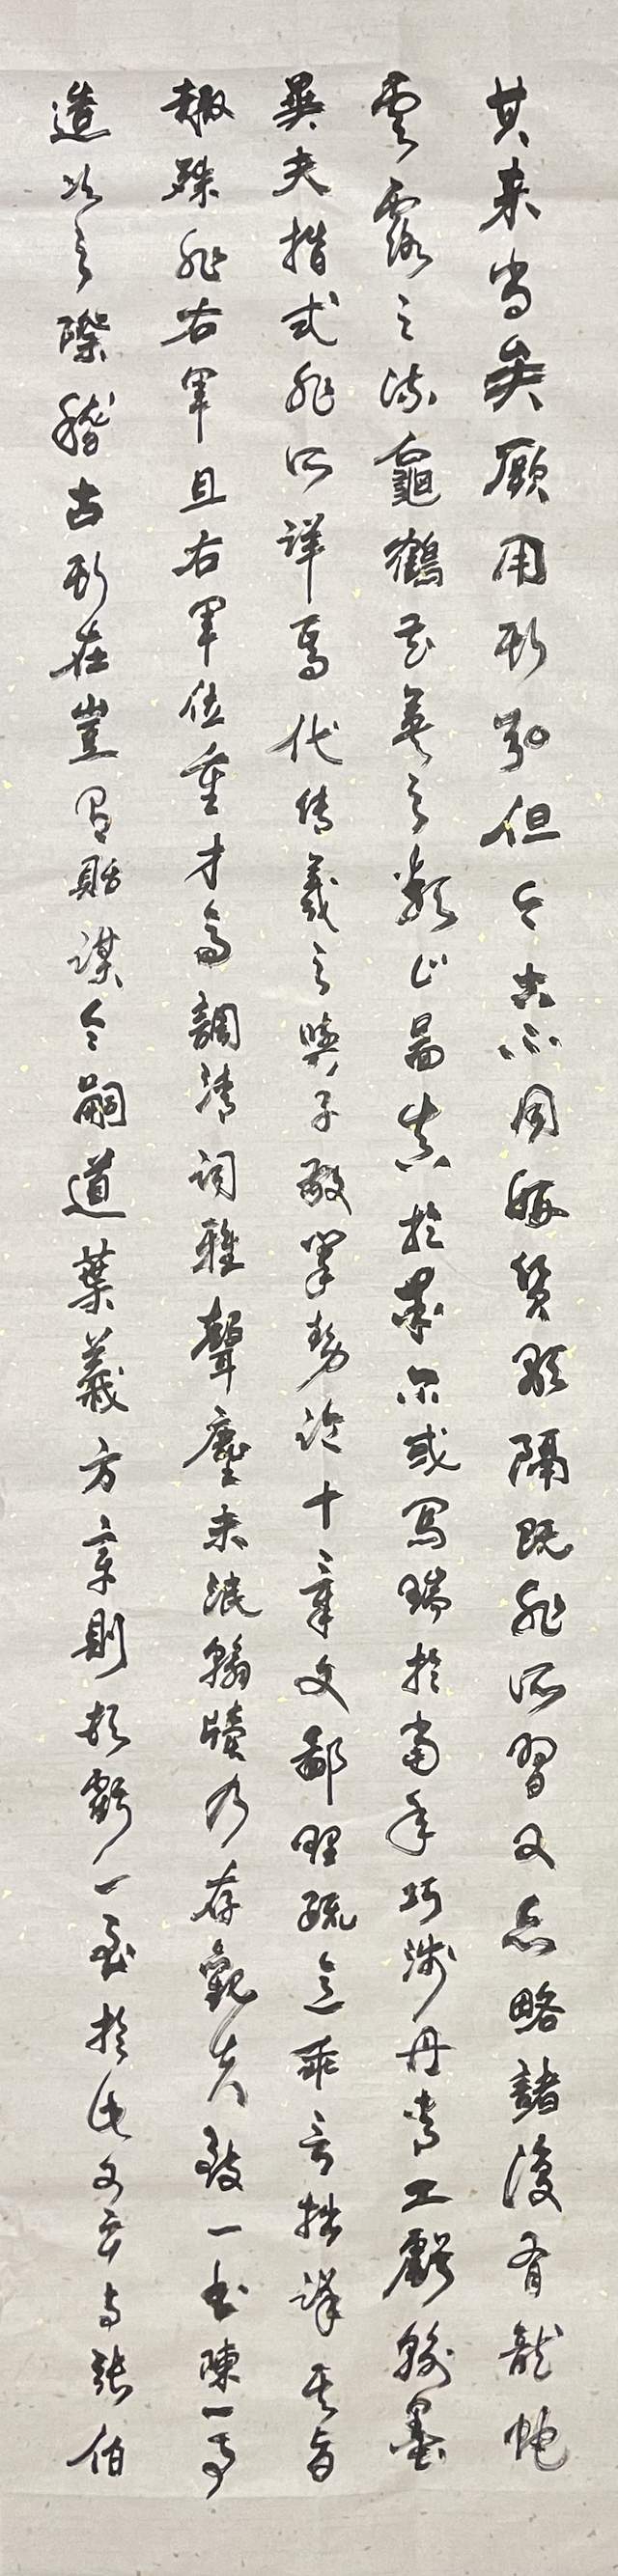 其来尚矣厥用斯弘但今古不同妍質懸隔既非所習又亦略諸復有龍蛇
雲露之流龜鶴花英之類乍圖真於率尔或寫瑞於當年巧涉丹青工虧翰墨
異夫楷式非所詳焉代傳羲之與子敬筆勢論十章文鄙理疏意乖言拙詳其旨
趣殊非右軍且右軍位重才高調清詞雅聲塵未泯翰牘仍存觀夫致一書陳一事
造次之際稽古斯在豈有貽謀令嗣道葉義方章則頓虧一至於此又云与張伯